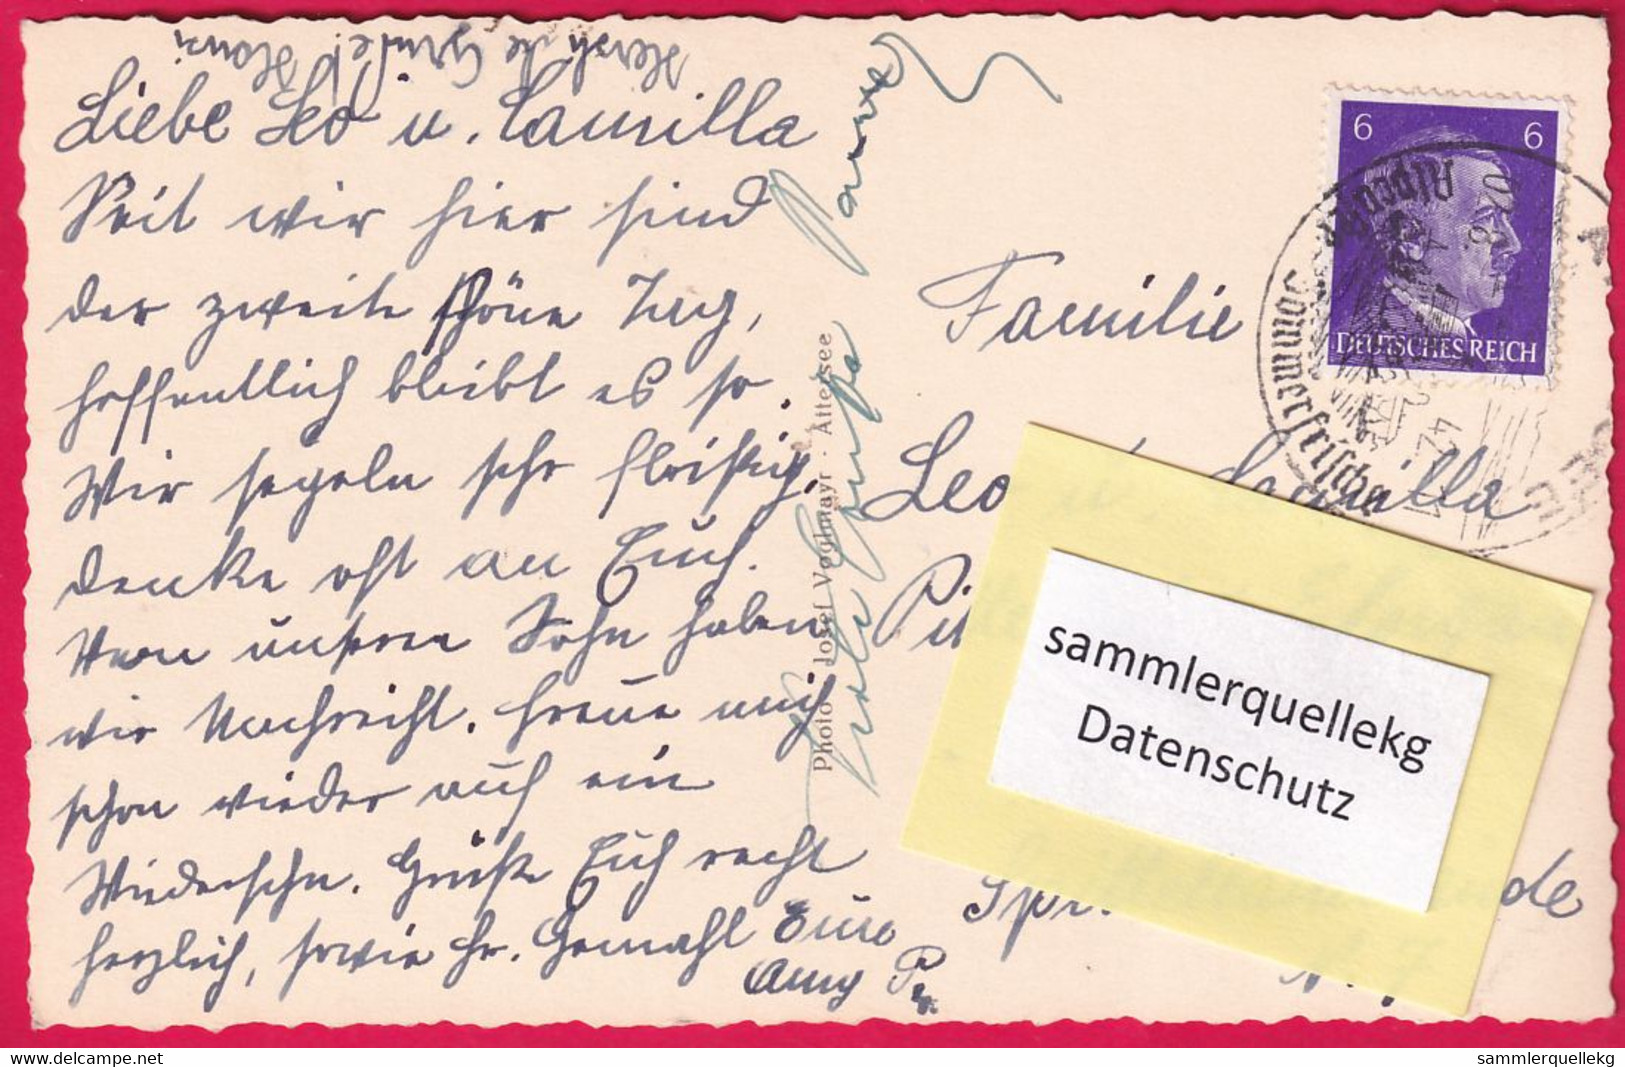 Herzliche Grüße! Hansi
Liebe Leo u. Camilla
Seit wir hier sind
der zweite schöne Tag,
hoffentlich bleibt es so.
Wir segeln sehr fleißig,
denke oft an Euch.
Von unseren Sohn haben
wir Nachricht. Freue mich
schon wieder auf ein
Wiedersehn. Grüße Euch recht
herzlich, sowie Hr. Gemahl Eure
Amy P.
Photo Josef Voglmayr · Attersee
6 6
DEUTSCHES REICH
Sommerfrische
42
Familie
Leo u. Camilla
sammlerquellekg
Datenschutz
delcampe.net
sammlerquellekg